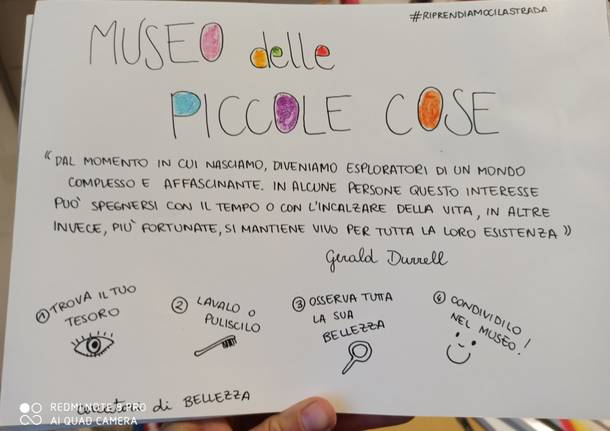 #RIPRENDIAMOCILASTRADA
MUSEO delle
PICCOLE COSE
« DAL MOMENTO IN CUI NASCIAMO, DIVENIAMO ESPLORATORI DI UN MONDO
COMPLESSO E AFFASCINANTE. IN ALCUNE PERSONE QUESTO INTERESSE
PUÒ SPEGNERSI CON IL TEMPO O CON L'INCALZARE DELLA VITA, IN ALTRE
INVECE, PIÙ FORTUNATE, SI MANTIENE VIVO PER TUTTA LA LORO ESISTENZA »
Gerald Durrell
① TROVA IL TUO
TESORO
② LAVALO O
PULISCILO
③ OSSERVA TUTTA
LA SUA
BELLEZZA
④ CONDIVIDILO
NEL MUSEO!
di BELLEZZA
REDMI NOTE 9 PRO
AI QUAD CAMERA